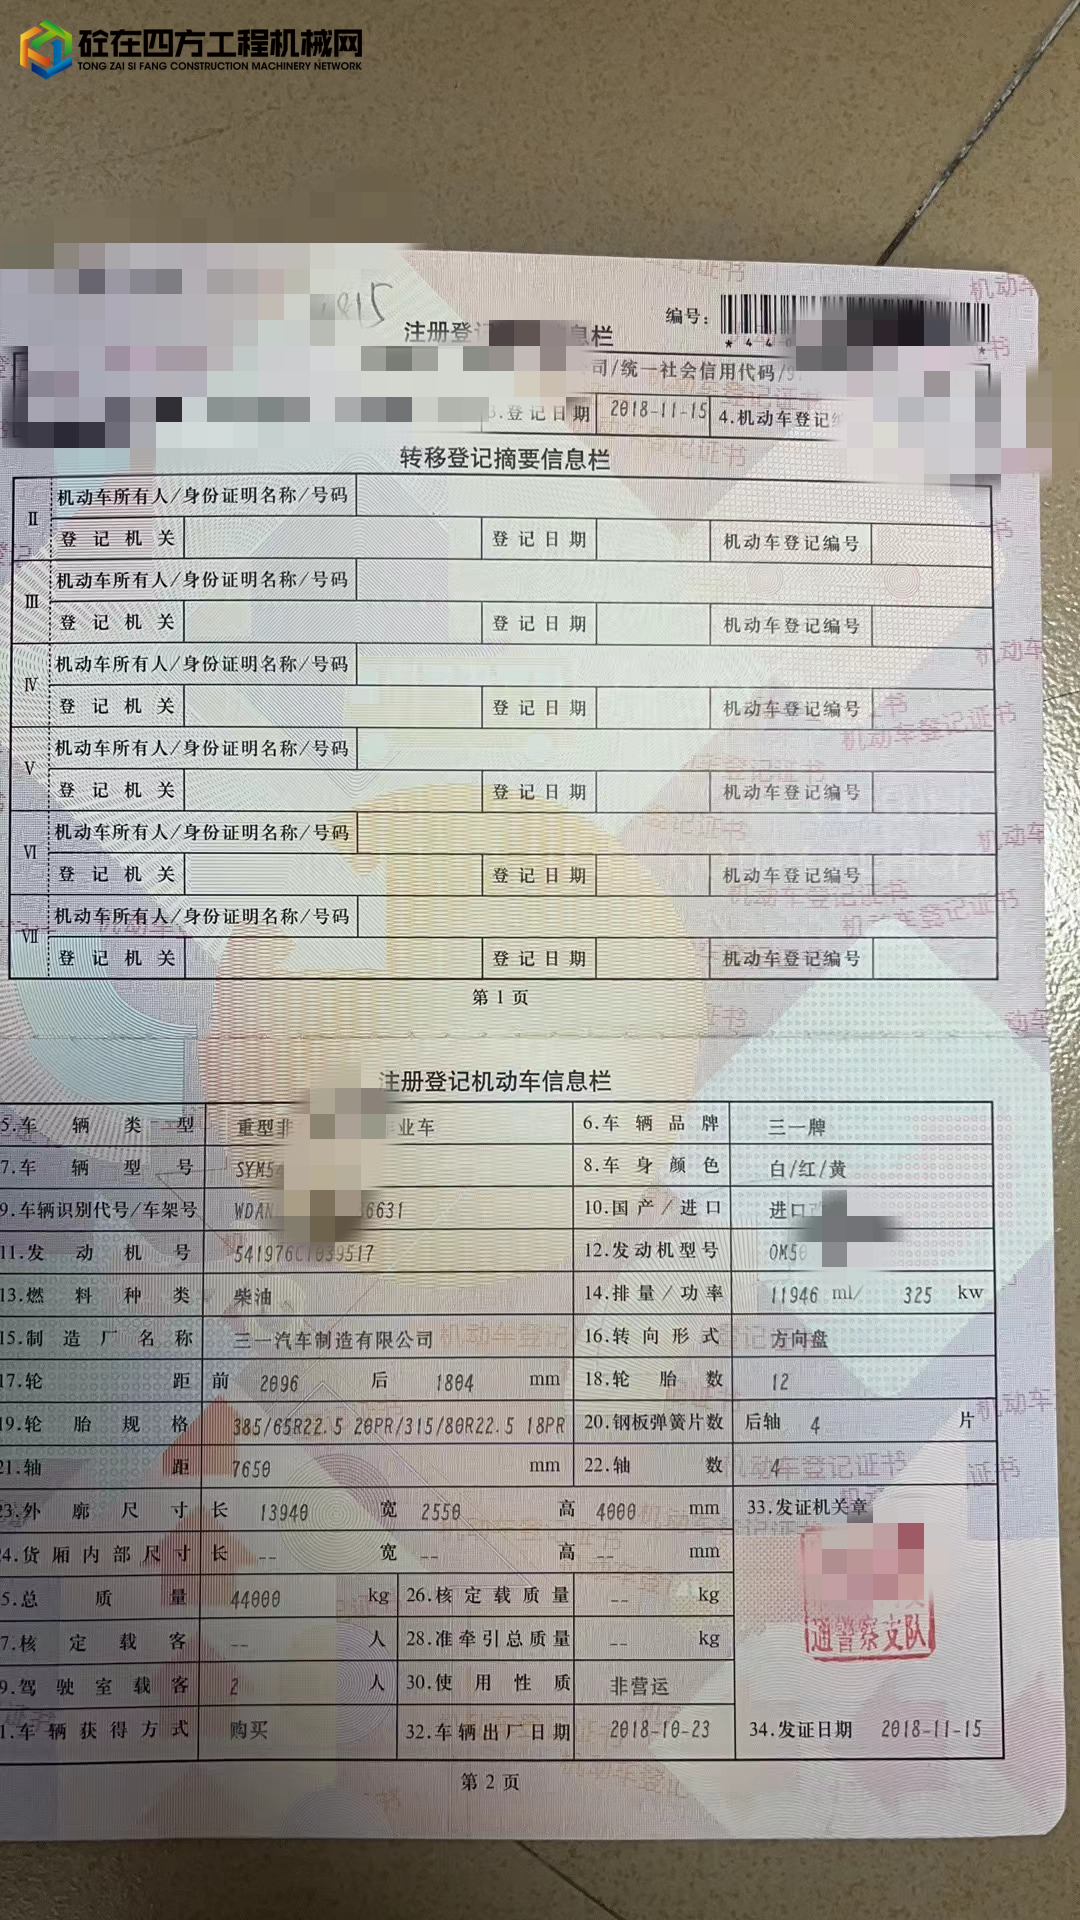 砼在四方工程机械网
TONG ZAI SI FANG CONSTRUCTION MACHINERY NETWORK
注册登 息栏
编号:
司/统一社会信用代码/9
3.登记日期 2018-11-15 4.机动车登记
转移登记摘要信息栏
II 机动车所有人/身份证明名称/号码
登记机关 登记日期 机动车登记编号
III 机动车所有人/身份证明名称/号码
登记机关 登记日期 机动车登记编号
IV 机动车所有人/身份证明名称/号码
登记机关 登记日期 机动车登记编号
V 机动车所有人/身份证明名称/号码
登记机关 登记日期 机动车登记编号
VI 机动车所有人/身份证明名称/号码
登记机关 登记日期 机动车登记编号
VII 机动车所有人/身份证明名称/号码
登记机关 登记日期 机动车登记编号
第 1 页
注册登记机动车信息栏
5.车辆类型 重型非 业车 6.车辆品牌 三一牌
7.车辆型号 SYM5 8.车身颜色 白/红/黄
9.车辆识别代号/车架号 WDAN 6631 10.国产/进口 进口
11.发动机号 541976C1039517 12.发动机型号 OM50
13.燃料种类 柴油 14.排量/功率 11946 ml/ 325 kw
15.制造厂名称 三一汽车制造有限公司 16.转向形式 方向盘
17.轮距 前 2096 后 1804 mm 18.轮胎数 12
19.轮胎规格 385/65R22.5 20PR/315/80R22.5 18PR 20.钢板弹簧片数 后轴 4 片
21.轴距 7650 mm 22.轴数 4
23.外廓尺寸 长 13940 宽 2550 高 4000 mm 33.发证机关章
24.货厢内部尺寸 长 -- 宽 -- 高 -- mm
5.总质量 44000 kg 26.核定载质量 -- kg
通警察支队
7.核定载客 -- 人 28.准牵引总质量 -- kg
9.驾驶室载客 2 人 30.使用性质 非营运
1.车辆获得方式 购买 32.车辆出厂日期 2018-10-23 34.发证日期 2018-11-15
第 2 页